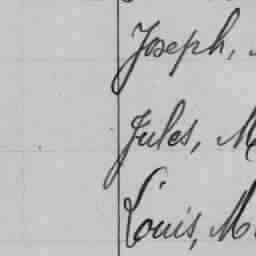 Joseph,
Jules, M
Louis, M